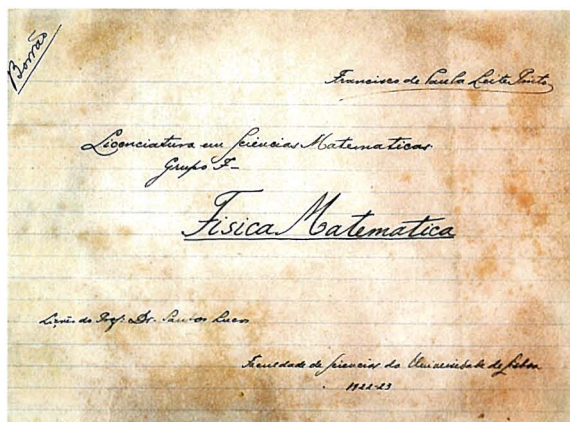 Borrão
Francisco de Paula Leite Pinto
Licenciatura em Sciencias Matematicas
Grupo F-
Fisica Matematica
Lições do Prof. Dr. Santos Lucas
Faculdade de Sciencias da Universidade de Lisboa
1922-23